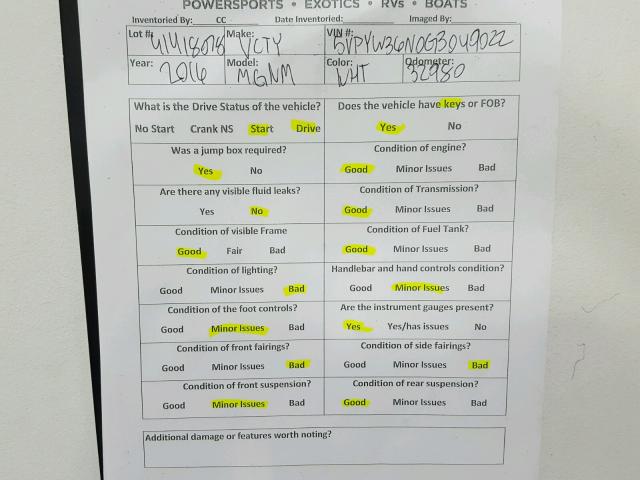 POWERSPORTS • EXOTICS • RVs • BOATS
Inventoried By: CC Date Inventoried: Imaged By:
Lot #: 41418078 Make: VCTY VIN #: 5VPYW36N0G3049022
Year: 2016 Model: MGNM Color: WHT Odometer: 32980
What is the Drive Status of the vehicle? Does the vehicle have keys or FOB?
No Start Crank NS Start Drive Yes No
Was a jump box required? Condition of engine?
Yes No Good Minor Issues Bad
Are there any visible fluid leaks? Condition of Transmission?
Yes No Good Minor Issues Bad
Condition of visible Frame Condition of Fuel Tank?
Good Fair Bad Good Minor Issues Bad
Condition of lighting? Handlebar and hand controls condition?
Good Minor Issues Bad Good Minor Issues Bad
Condition of the foot controls? Are the instrument gauges present?
Good Minor Issues Bad Yes Yes/has issues No
Condition of front fairings? Condition of side fairings?
Good Minor Issues Bad Good Minor Issues Bad
Condition of front suspension? Condition of rear suspension?
Good Minor Issues Bad Good Minor Issues Bad
Additional damage or features worth noting?